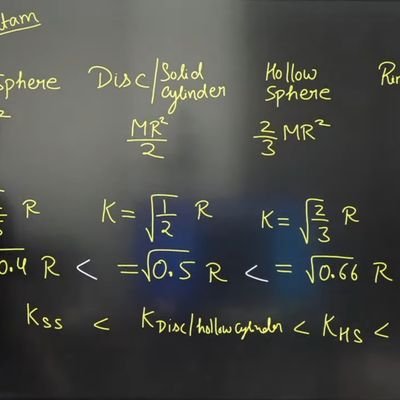 sphere Disc/Solid cylinder Hollow Sphere
MR²/2 2/3 MR²
R K = √1/2 R K = √2/3 R
0.4 R < = √0.5 R < = √0.66 R
Kss < KDisc/hollow cylinder < KHS <